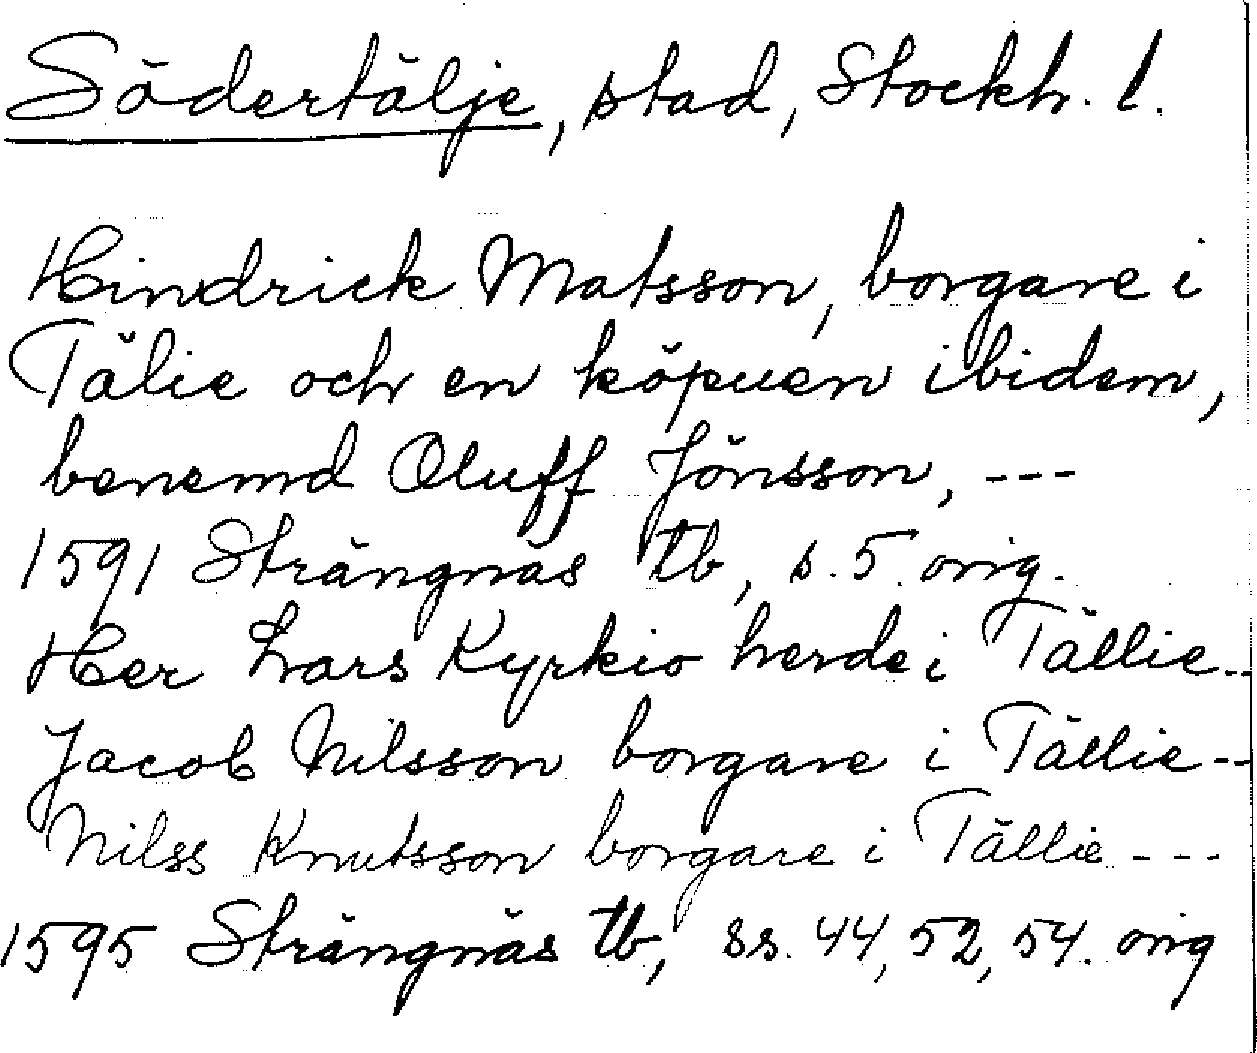 Södertälje, stad, Stockh. l.
Hindrick Matsson, borgare i
Tälie och en köpuen ibidem,
benemd Oluff Jönsson, ---
1591 Strängnäs tb, s. 5. orig.
Her Lars Kyrkio herde i Tällie--
Jacob Nilsson borgare i Tällie--
Nilss Knutsson borgare i Tällie---
1595 Strängnäs tb, ss. 44, 52, 54. orig